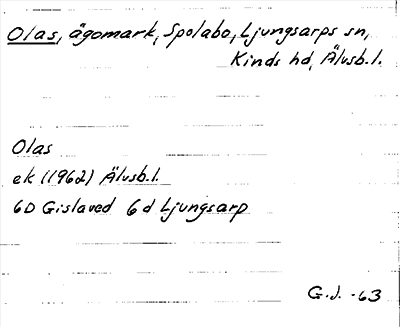 Olas, ägomark, Spolabo, Ljungsarps sn,
Kinds hd, Älvsb.l.
Olas
ek (1962) Älvsb.l.
6D Gislaved 6d Ljungsarp
G.J. -63